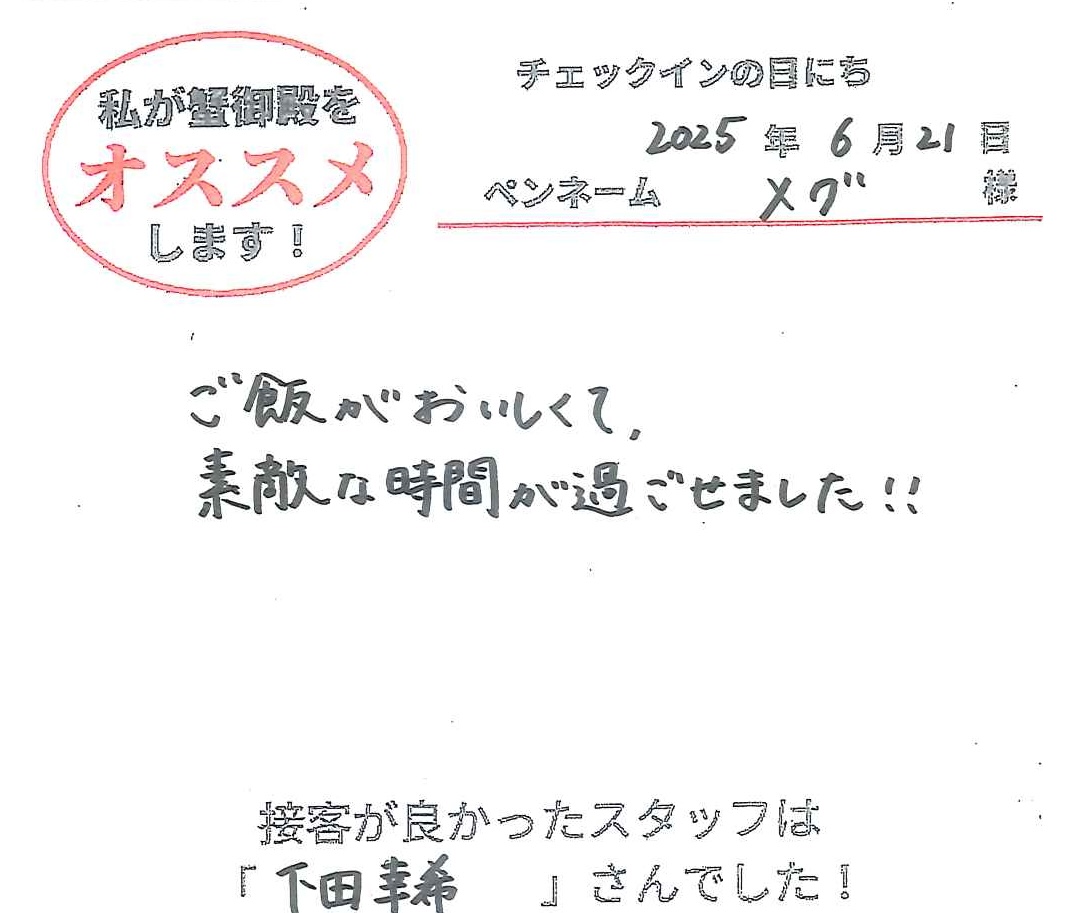 私が蟹御殿を
オススメ
します！
チェックインの日にち
2025 年 6 月 21 日
ペンネーム メグ 様
ご飯がおいしくて、
素敵な時間が過ごせました!!
接客が良かったスタッフは
「下田幸希 」さんでした！